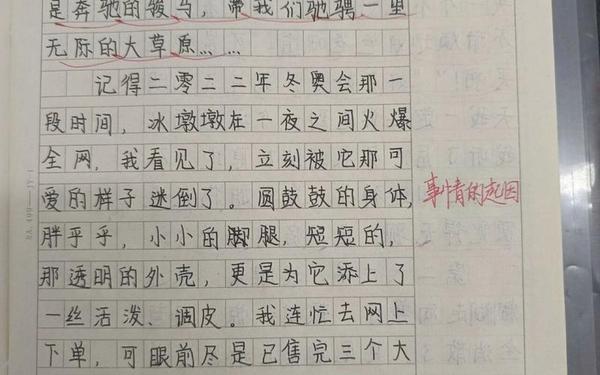 是奔驰的骏马，带我们驰骋一里
无际的大草原……
记得二零二二年冬奥会那一
段时间，冰墩墩在一夜之间火爆
全网，我看见了，立刻被它那可
爱的样子迷倒了。圆鼓鼓的身体，
事情的起因
胖乎乎，小小的脚腿，短短的，
那透明的外壳，更是为它添上了
一丝活泼、调皮。我连忙去网上
下单，可眼前尽是已售完三个大